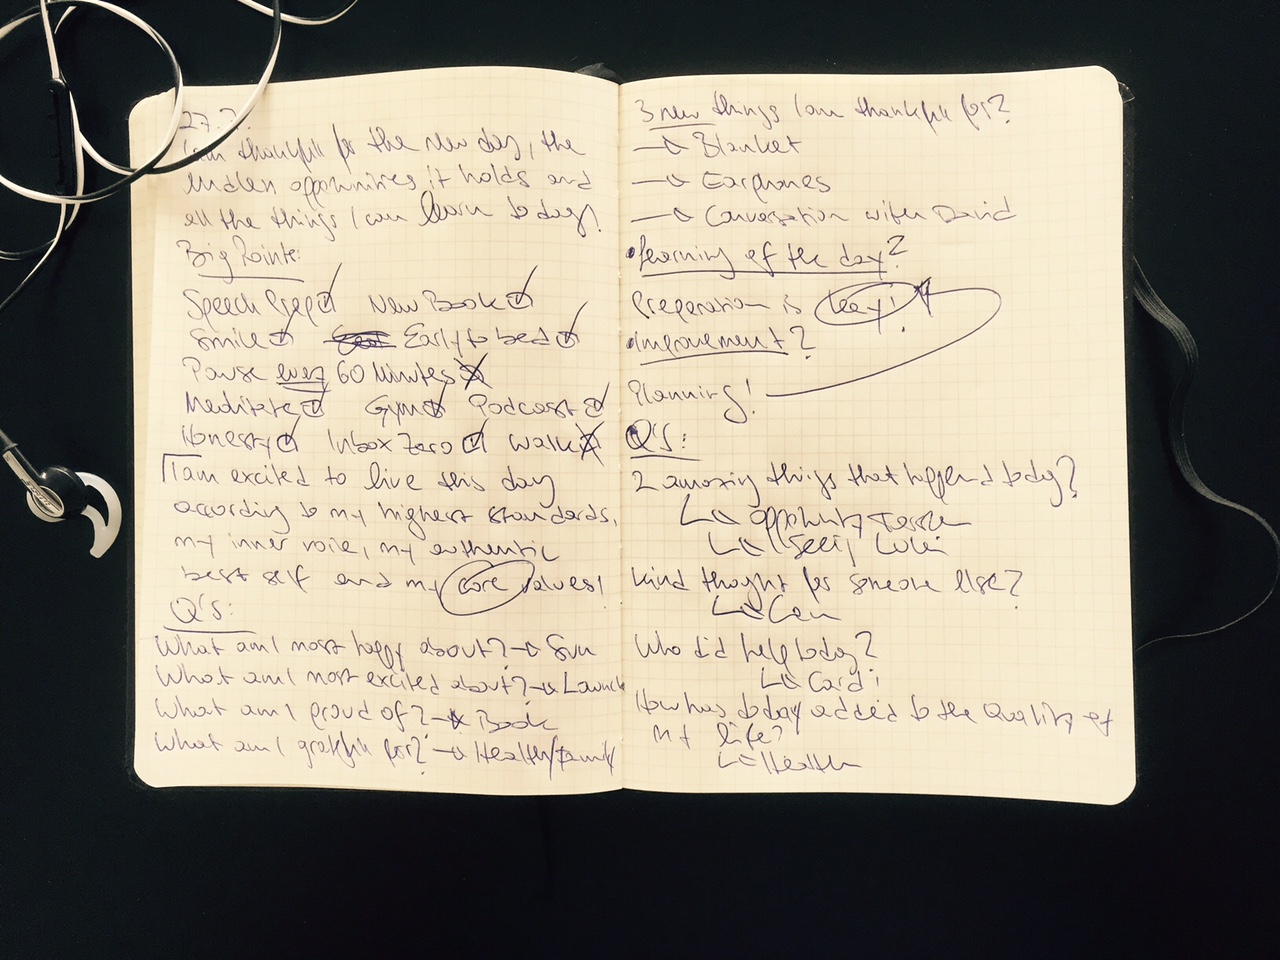 27.
I am thankful for the new day, the
endless opportunities it holds and
all the things I can learn today!
Big Points:
Speech Prep New Book
Smile Early to bed
Pause every 60 Minutes
Meditate Gym Podcast
Honesty Inbox Zero Walk
I am excited to live this day
according to my highest standards,
my inner voice, my authentic
best self and my core values!
Q's:
What am I most happy about? → Sun
What am I most excited about? → Launch
What am I proud of? → Book
What am I grateful for? → Health/Family
3 new things I am thankful for?
→ Blanket
→ Earphones
→ Conversation with David
• Learning of the day?
Preparation is key!
• Improvement?
Planning!
Q's:
2 amazing things that happened today?
Opportunity
Seeing
Kind thought for someone else?
Who did help today?
How has today added to the Quality of
my life?
Health